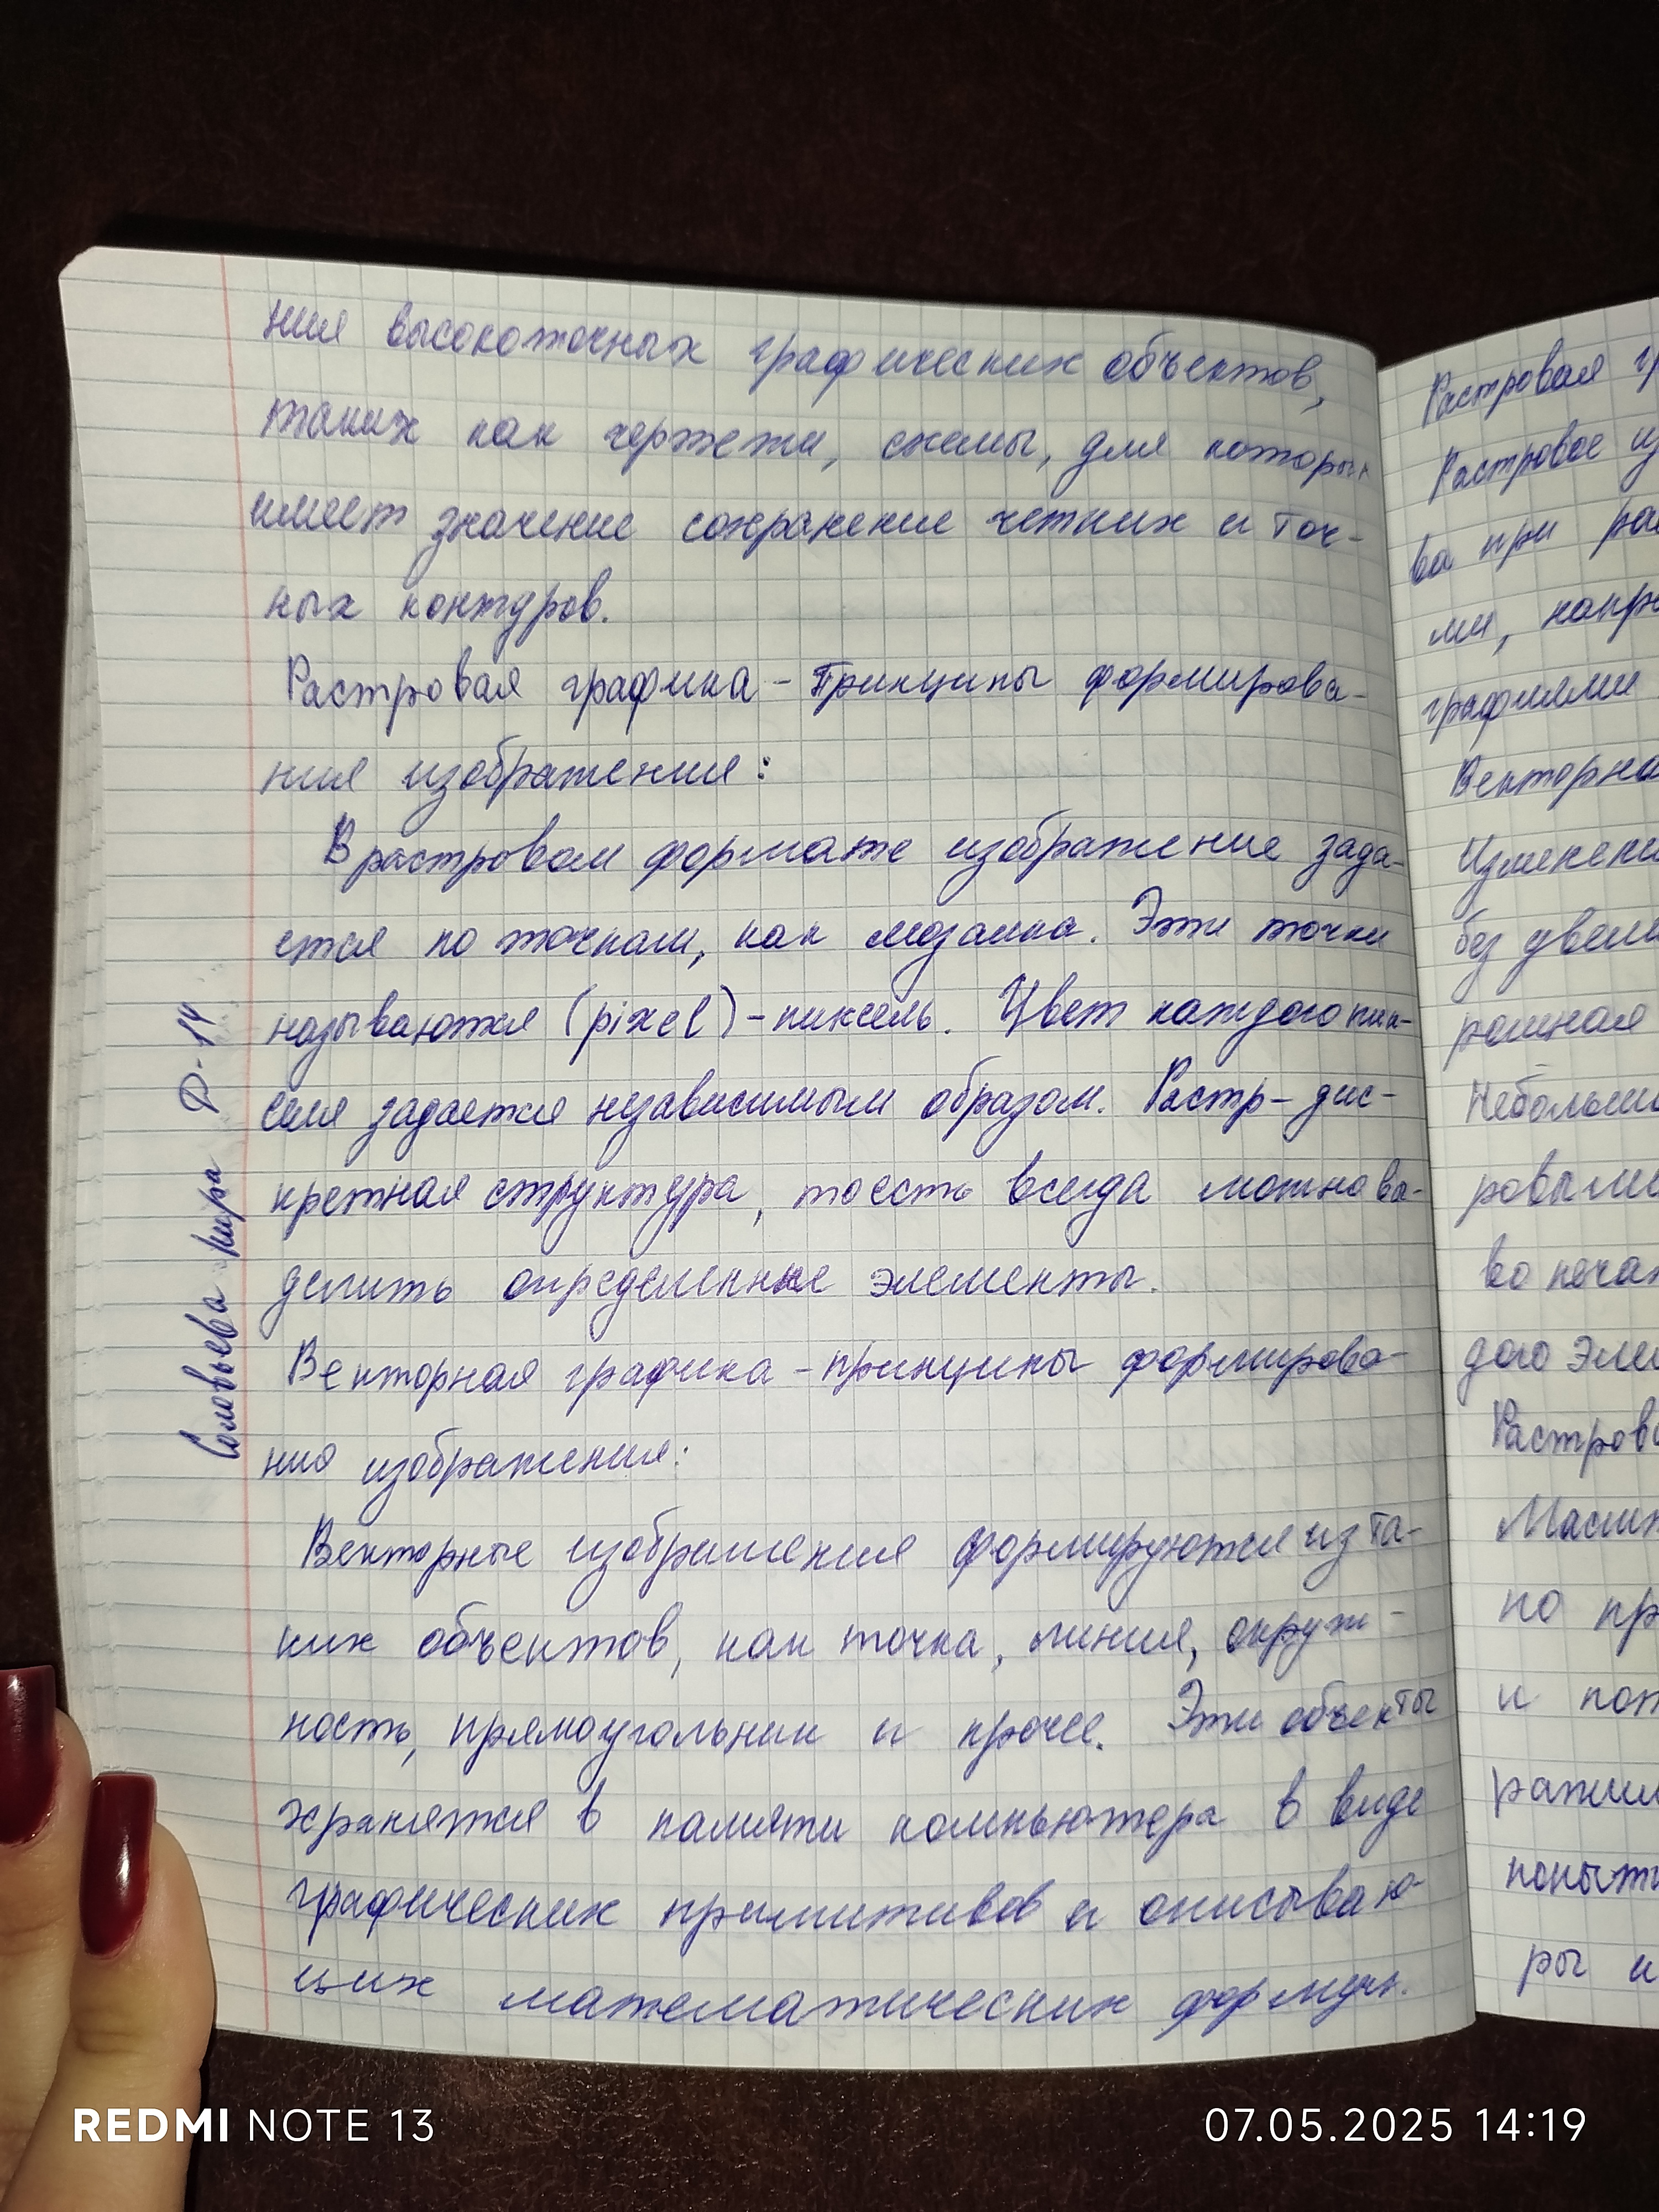 ния высокоточных графических объектов,
таких как чертежи, схемы, для которых
имеет значение сохранение четких и точ-
ных контуров.
Растровая графика - Принципы формирова-
ния изображения:
В растровом формате изображение зада-
ется по точкам, как мозаика. Эти точки
называются (pixel) - пиксель. Цвет каждого пик-
селя задается независимым образом. Растр - дис-
кретная структура, то есть всегда можно вы-
делить определенные элементы.
Векторная графика - принципы формирова-
ния изображения:
Векторные изображения формируются из та-
ких объектов, как точка, линия, окруж-
ность, прямоугольник и прочее. Эти объекты
хранятся в памяти компьютера в виде
графических примитивов и описываю-
щих математических формул.
Соловьева Кира Д-14
Растровая
Растровое
ва при
ми,
графиями
Векторная
без
Небольши
ровыми
дого
но
и
ры и
REDMI NOTE 13
07.05.2025 14:19